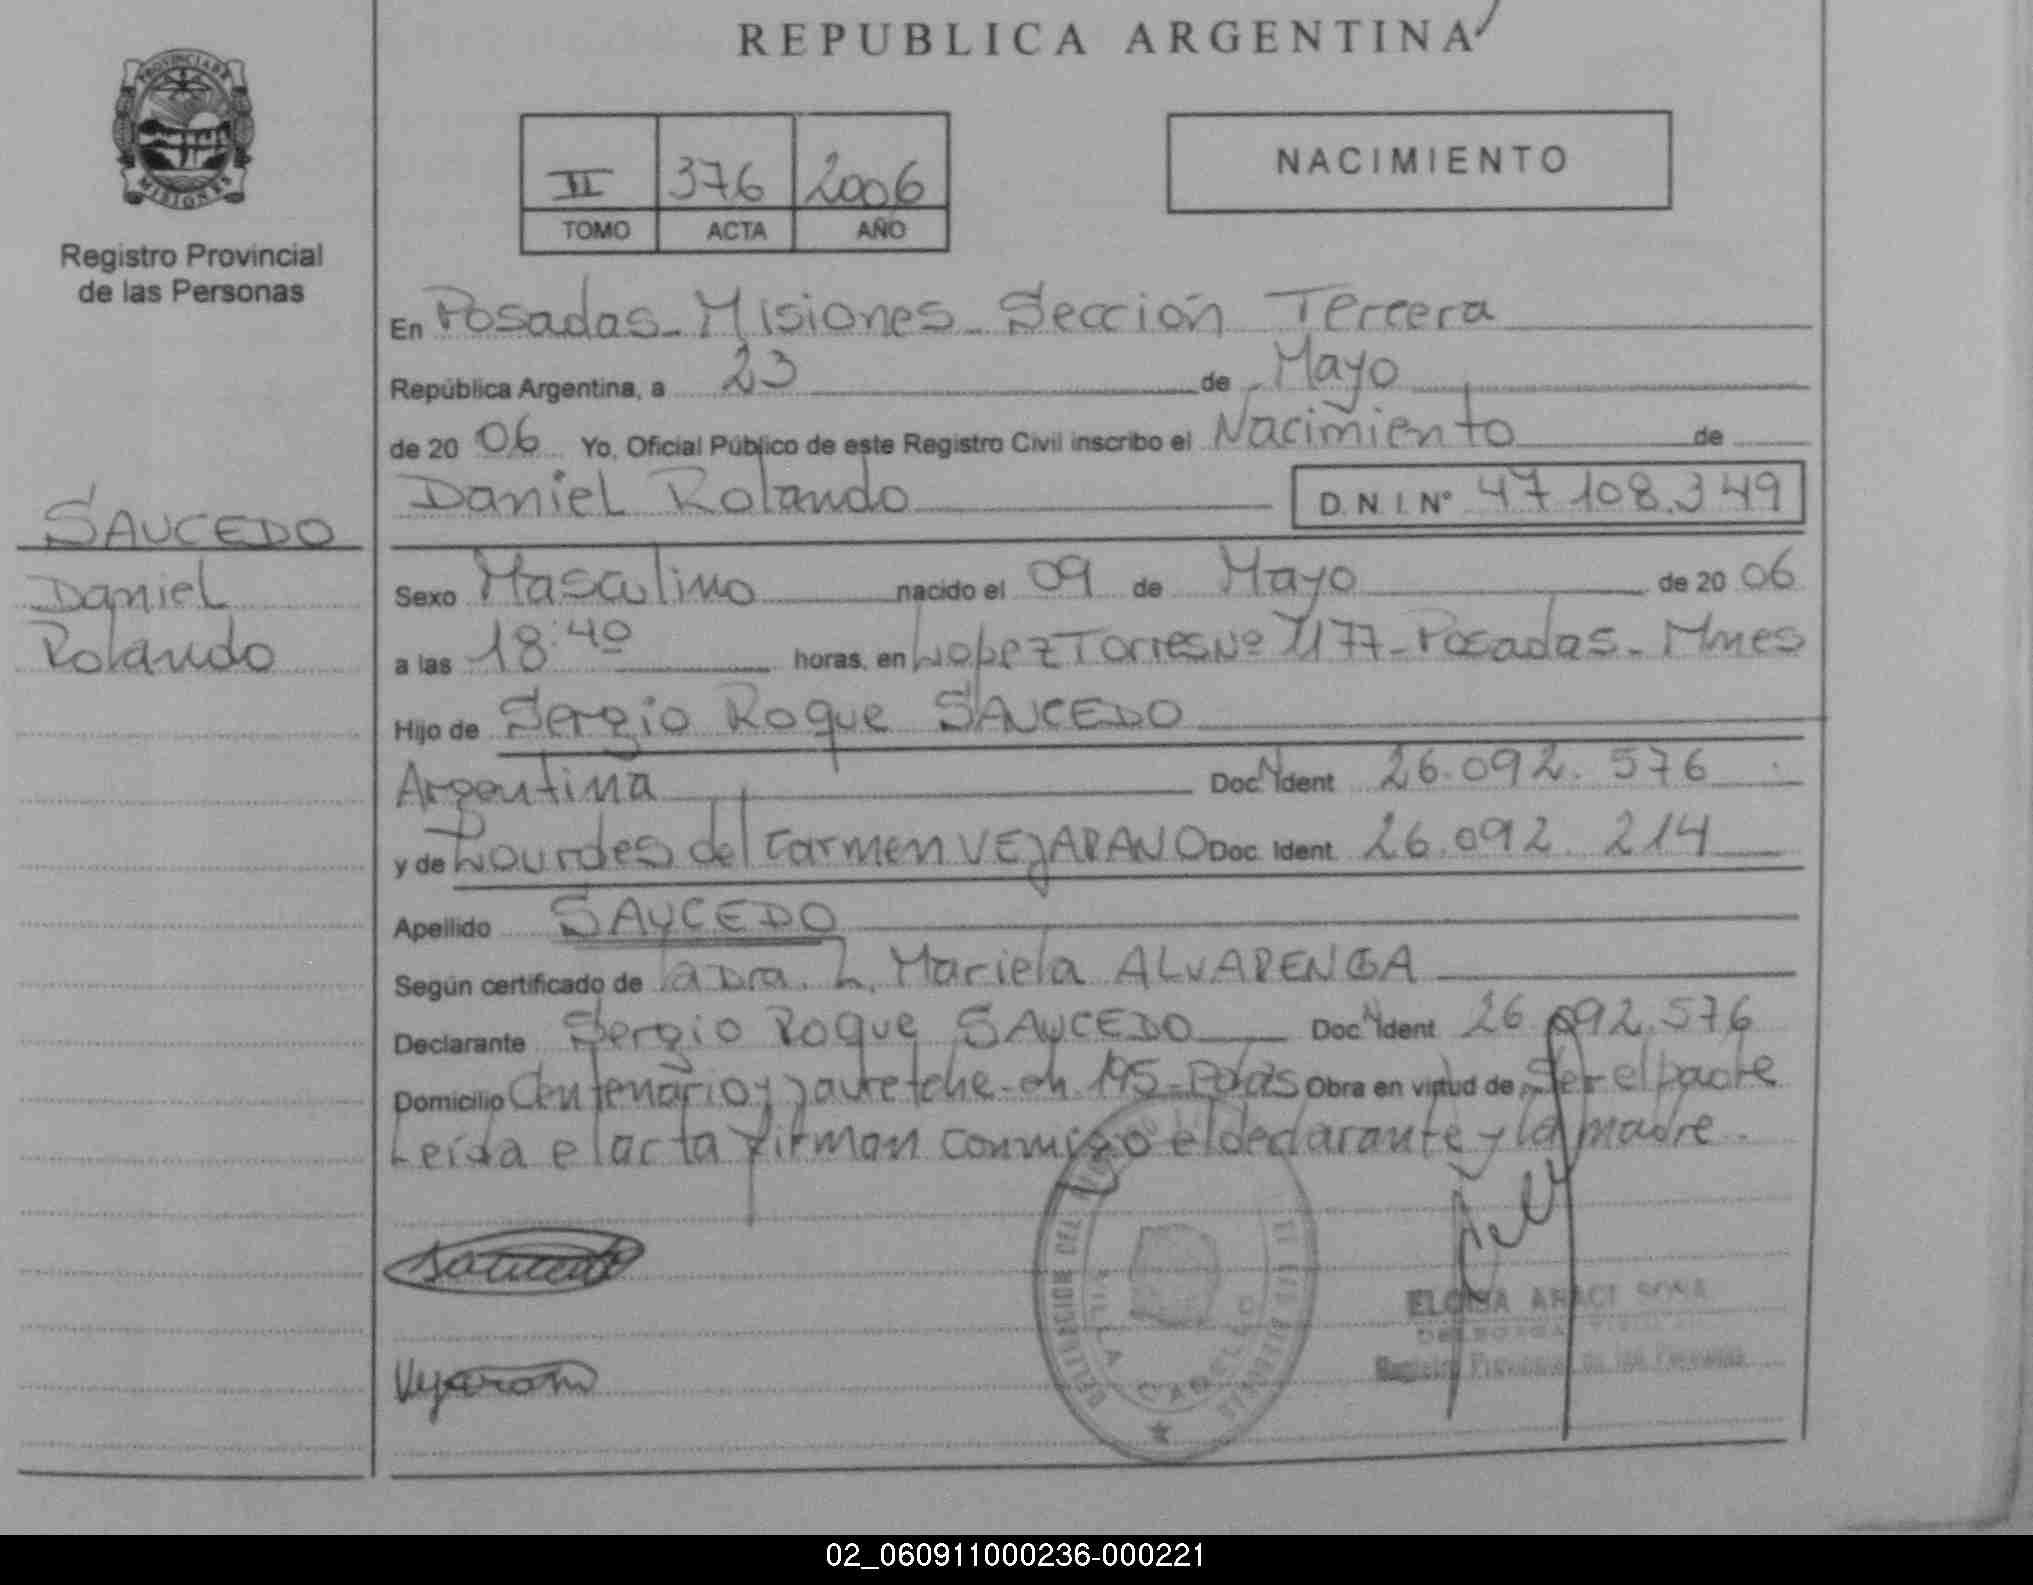 REPUBLICA ARGENTINA
PROVINCIA DE
MISIONES
Registro Provincial
de las Personas
II 376 2006
TOMO ACTA AÑO
NACIMIENTO
En Posadas - Misiones - Sección Tercera
República Argentina, a 23 de Mayo
de 20 06 Yo, Oficial Público de este Registro Civil inscribo el Nacimiento de
Daniel Rolando D.N.I.Nº 47 108.349
SAUCEDO
Daniel
Rolando
Sexo Masculino nacido el 09 de Mayo de 20 06
a las 18:40 horas, en Lopez Torres Nº 1177 - Posadas - Mnes
Hijo de Sergio Roque SAUCEDO
Argentina Doc. Ident 26.092.576
y de Lourdes del Carmen VEJARANO Doc. Ident. 26.092.214
Apellido SAUCEDO
Según certificado de la Dra. L. Mariela ALVARENGA
Declarante Sergio Roque SAUCEDO Doc. Ident 26.092.576
Domicilio Centenario y Jauretche - ch. 195 - Pdas Obra en virtud de Ser el padre
Leída el acta firman conmigo el declarante y la madre.
DELEGACION DEL
VILLA CABELLO
Registro Provincial de las Personas
02_060911000236-000221